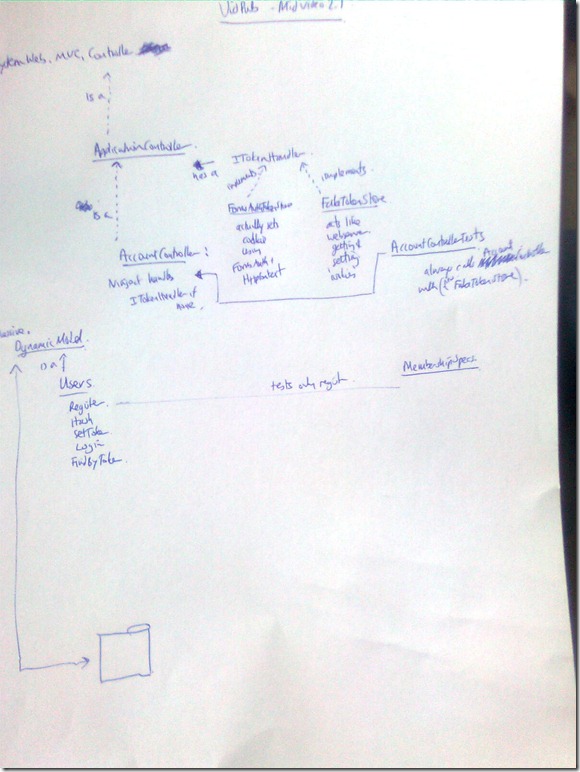 VidPub - Mid video 2.1
System.Web.MVC.Controller
is a
ApplicationController
has a
ITokenHandler
implements
implements
is a
FormsAuthTokenStore
actually sets
cookie
using
FormsAuth &
HttpContext
FakeTokenStore
acts like
webserver
getting &
setting
values
AccountController:
Ninject handles
ITokenHandler if
none.
AccountControllerTests
always calls Account
Controller
with ( FakeTokenStore).
Massive.
DynamicModel.
is a
Users
Register
Hash
SetToken
Login
FindByToken
tests only register
MembershipSpecs